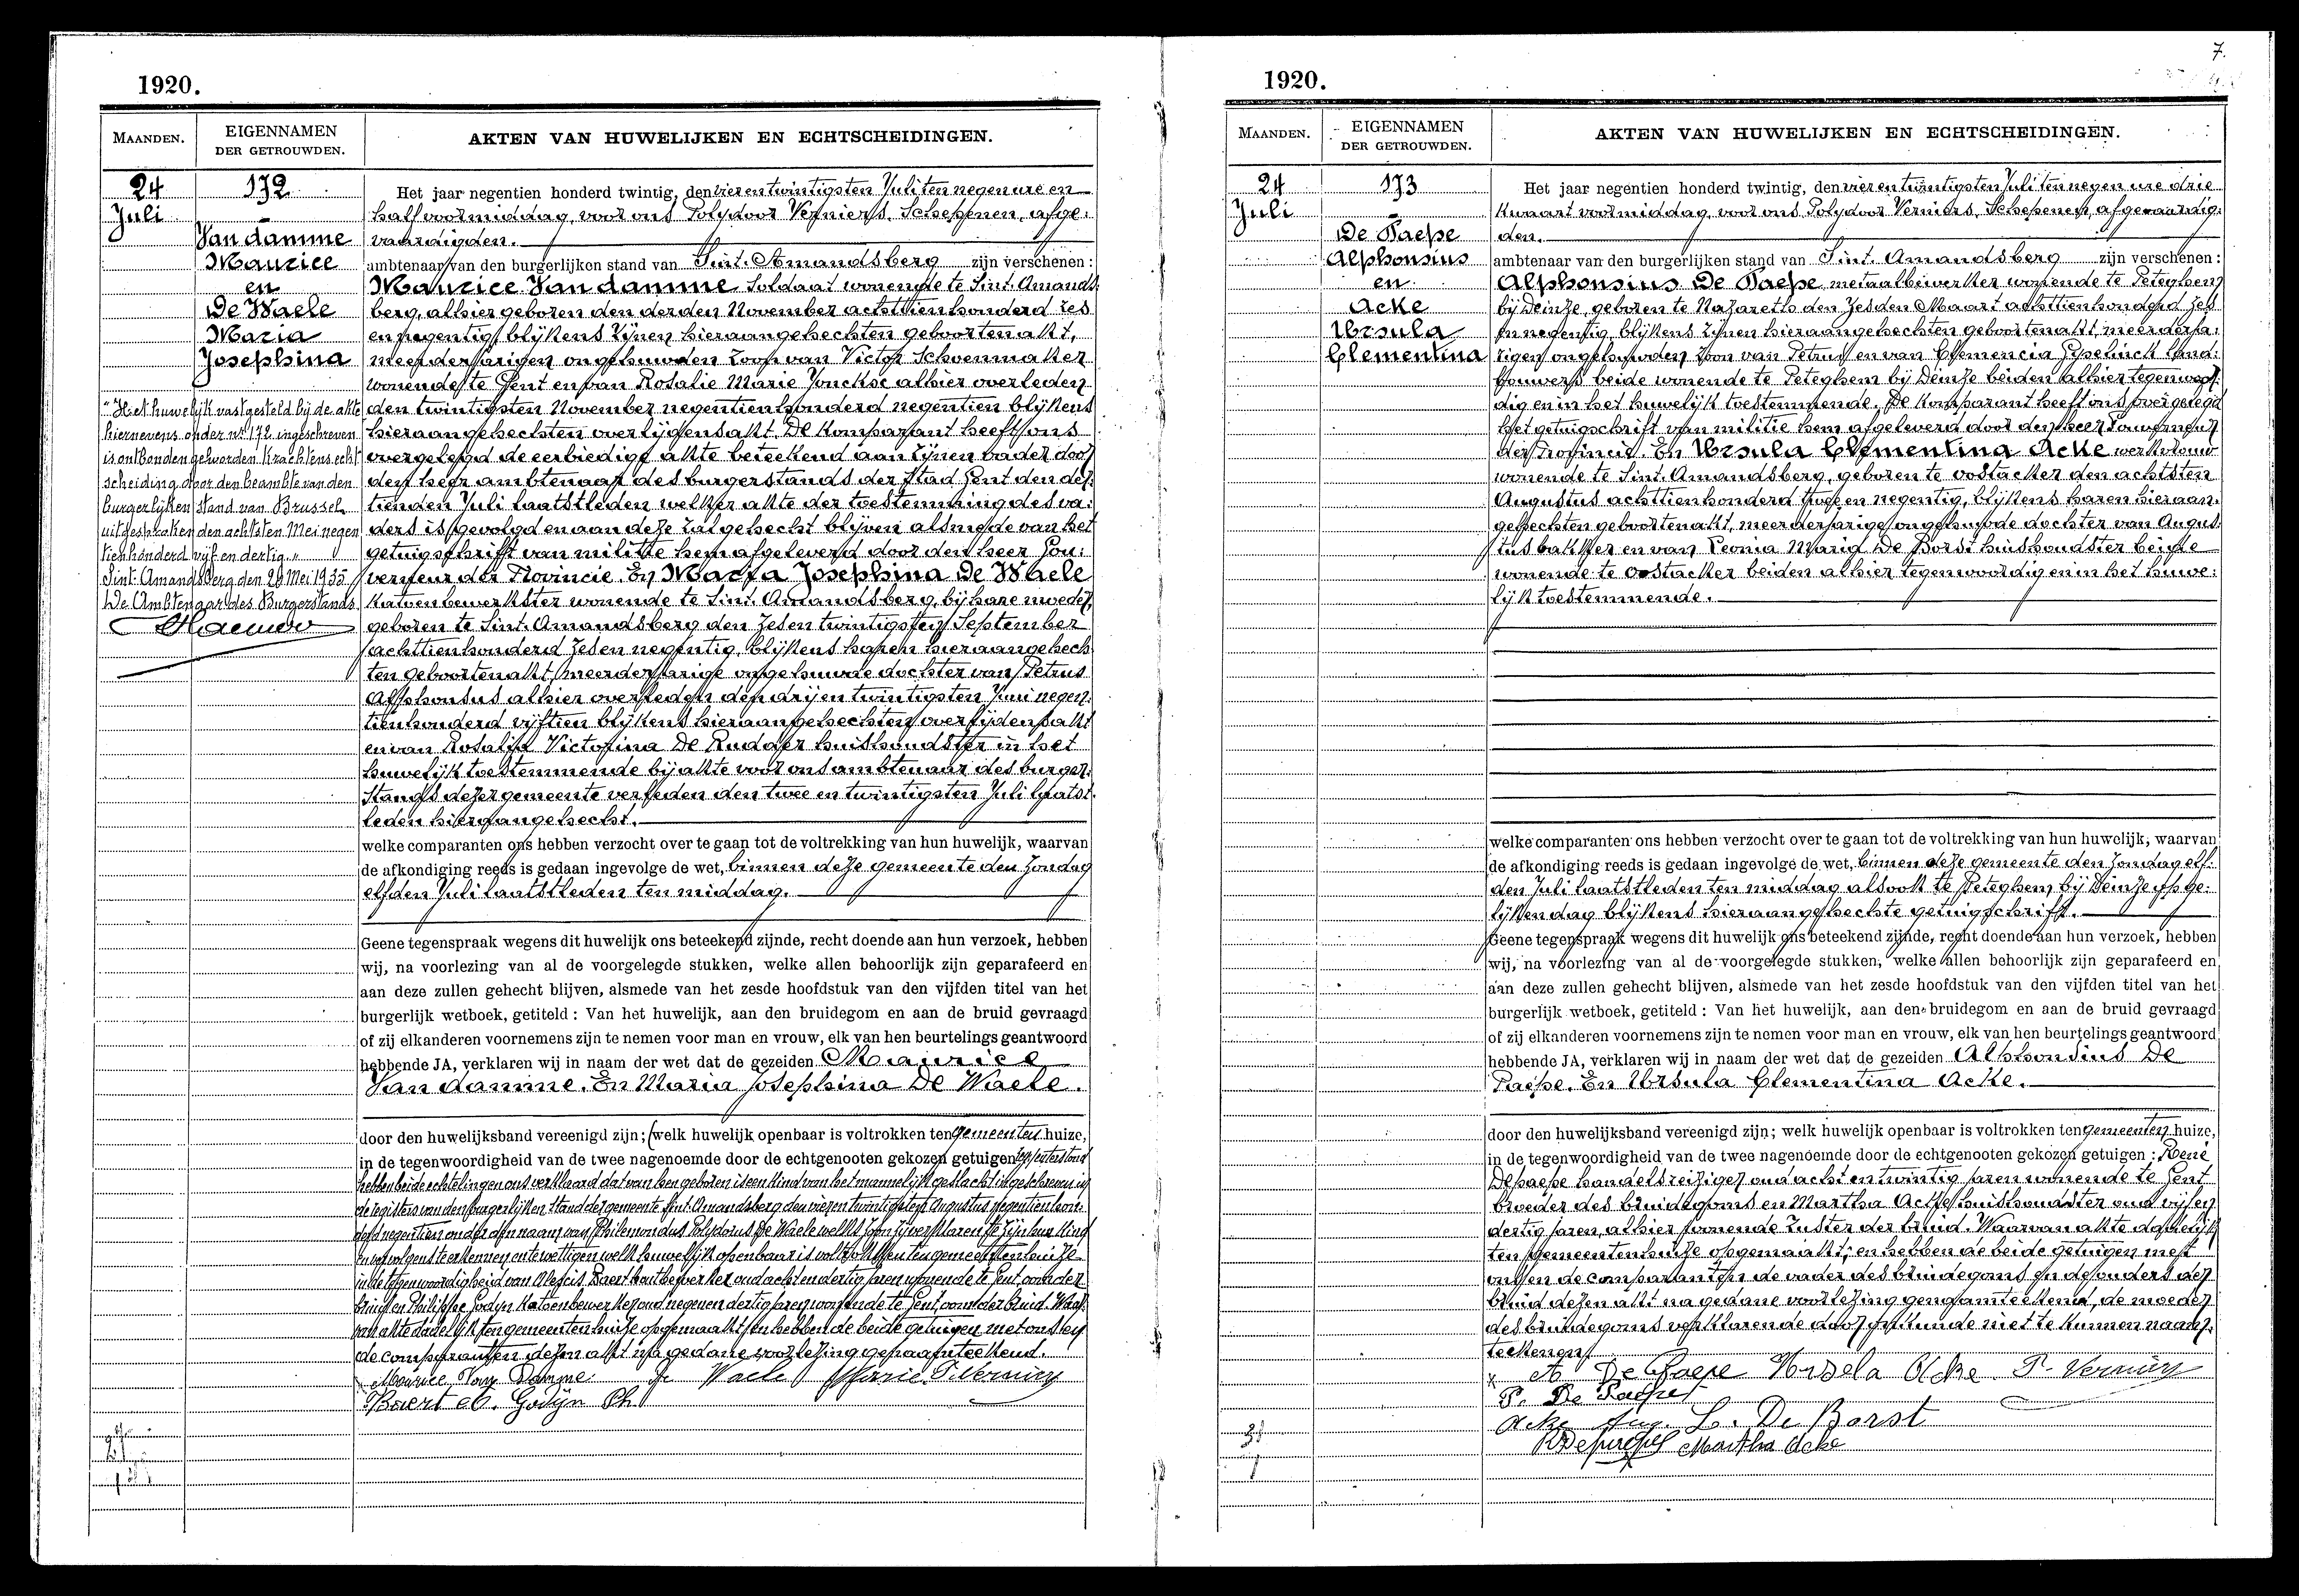 1920.
MAANDEN.
EIGENNAMEN
DER GETROUWDEN.
AKTEN VAN HUWELIJKEN EN ECHTSCHEIDINGEN.
24
Juli
172
Van damme
Maurice
en
De Waele
Maria
Josephina
"Het huwelijk vastgesteld bij de akte
hiernevens onder nr 172 ingeschreven
is ontbonden geworden krachtens echt
scheiding door den beambte van den
burgerlijken stand van Brussel
uitgesproken den achtsten Mei negen
tienhonderd vijf en dertig."
Sint-Amandsberg den 29 Mei 1935
De Ambtenaar des Burgerstands
Het jaar negentien honderd twintig, den vier en twintigsten Juli ten negen ure en
half voormiddag, voor ons Polydoor Verniers, Schepenen, afge:
vaardigden.
ambtenaar van den burgerlijken stand van Sint. Amandsberg zijn verschenen:
Maurice Van damme Soldaat wonende te Sint. Amands
berg, alhier geboren den derden November achttienhonderd zes
en negentig, blijkens zijnen hieraangehechten geboortenakt,
meerderjarigen ongehuwden zoon van Victor Schoenmaker
wonende te Gent en van Rosalie Marie Jonckse alhier overleden
den twintigsten November negentienhonderd negentien blijkens
hieraangehechten overlijdensakt. De Komparant heeft ons
overgelegd de eerbiedige akte beteekend aan zijnen vader door
den heer ambtenaar des burgerstands der Stad Gent den der
tienden Juli laatstleden welker akte der toestemming des va:
ders is gevolgd en aan deze zal gehecht blijven alsmede van het
getuigschrift van militie hem afgeleverd door den heer Gou:
verneur der Provincie. En Maria Josephina De Waele
Katoenbewerkster wonende te Sint. Amandsberg, bij hare moeder,
geboren te Sint. Amandsberg den zes en twintigsten September
achttienhonderd zes en negentig, blijkens haren hieraangehech
ten geboortenakt, meerderjarige ongehuwde dochter van Petrus
Alphonsus alhier overleden den drij en twintigsten Juni negen:
tienhonderd vijftien blijkens hieraangehechten overlijdensakt
en van Rosalia Victorina De Rudder huishoudster in het
huwelijk toestemmende bij akte voor ons ambtenaar des burger:
stands dezer gemeente verleden den twee en twintigsten Juli laatst.
leden hieraangehecht.
welke comparanten ons hebben verzocht over te gaan tot de voltrekking van hun huwelijk, waarvan
de afkondiging reeds is gedaan ingevolge de wet, binnen deze gemeente den Zondag
elfden Juli laatstleden ten middag.
Geene tegenspraak wegens dit huwelijk ons beteekend zijnde, recht doende aan hun verzoek, hebben
wij, na voorlezing van al de voorgelegde stukken, welke allen behoorlijk zijn geparafeerd en
aan deze zullen gehecht blijven, alsmede van het zesde hoofdstuk van den vijfden titel van het
burgerlijk wetboek, getiteld : Van het huwelijk, aan den bruidegom en aan de bruid gevraagd
of zij elkanderen voornemens zijn te nemen voor man en vrouw, elk van hen beurtelings geantwoord
hebbende JA, verklaren wij in naam der wet dat de gezeiden Maurice
Van damme. En Maria Josephina De Waele.
door den huwelijksband vereenigd zijn; (welk huwelijk openbaar is voltrokken ten gemeenten huize,
in de tegenwoordigheid van de twee nagenoemde door de echtgenooten gekozen getuigen
hebben beide echtelingen ons verklaard dat van hen geboren is een kind van het mannelijk geslacht ingeschreven in
de registers van den burgerlijken stand der gemeente Sint. Amandsberg den vier en twintigsten Augustus negentienhon:
derd negentien onder den naam van Philemondus Polydorus De Waele welks zoon zij verklaren te zijn hun kind
en vervolgens te erkennen en te wettigen welk huwelijk openbaar is voltrokken ten gemeentenhuize
in de tegenwoordigheid van Alexis Baert houtbewerker oud acht en dertig jaren wonende te Gent, oom der
bruid en Philippe Godyn Katoenbewerker oud negen en dertig jaren wonende te Gent, oom der bruid. Waar
van akte dadelijk ten gemeentenhuize opgemaakt, en hebben de beide getuigen met ons en
de comparanten dezen akt na gedane voorlezing genaamteekend.
Maurice Van Damme De Waele Marie P. Verniers
Baert A. Godyn Ph
7.
1920.
MAANDEN.
EIGENNAMEN
DER GETROUWDEN.
AKTEN VAN HUWELIJKEN EN ECHTSCHEIDINGEN.
24
Juli
173
De Paepe
Alphonsius
en
Acke
Ursula
Clementina
Het jaar negentien honderd twintig, den vier en twintigsten Juli ten negen ure drie
kwaart voormiddag, voor ons Polydoor Verniers, Schepenen, afgevaardig:
den.
ambtenaar van den burgerlijken stand van Sint. Amandsberg zijn verschenen :
Alphonsius De Paepe metaalbewerker wonende te Peteghem
bij Deinze, geboren te Nazareth den zesden Maart achttienhonderd zes
en negentig, blijkens zijnen hieraangehechten geboortenakt, meerderja:
rigen ongehuwden zoon van Petrus en van Clemencia Gyselinck land:
bouwers beide wonende te Peteghem bij Deinze beiden alhier tegenwoor:
dig en in het huwelijk toestemmende. De Komparant heeft ons overgelegd
het getuigschrift van militie hem afgeleverd door den heer Gouverneur
der Provincie. En Ursula Clementina Acke werkvrouw
wonende te Sint. Amandsberg, geboren te Oostacker den achtsten
Augustus achttienhonderd twee en negentig, blijkens haren hieraan.
gehechten geboortenakt, meerderjarige ongehuwde dochter van Augus
tus bakker en van Leonia Maria De Borst huishoudster beide
wonende te Oostacker beiden alhier tegenwoordig en in het huwe:
lijk toestemmende.
welke comparanten ons hebben verzocht over te gaan tot de voltrekking van hun huwelijk, waarvan
de afkondiging reeds is gedaan ingevolge de wet, binnen deze gemeente den Zondag elf:
den Juli laatstleden ten middag alsook te Peteghem bij Deinze op ge:
lijken dag blijkens hieraangehechte getuigschrift.
Geene tegenspraak wegens dit huwelijk ons beteekend zijnde, recht doende aan hun verzoek, hebben
wij, na voorlezing van al de voorgelegde stukken, welke allen behoorlijk zijn geparafeerd en
aan deze zullen gehecht blijven, alsmede van het zesde hoofdstuk van den vijfden titel van het
burgerlijk wetboek, getiteld : Van het huwelijk, aan den bruidegom en aan de bruid gevraagd
of zij elkanderen voornemens zijn te nemen voor man en vrouw, elk van hen beurtelings geantwoord
hebbende JA, verklaren wij in naam der wet dat de gezeiden Alphonsius De
Paepe. En Ursula Clementina Acke.
door den huwelijksband vereenigd zijn; welk huwelijk openbaar is voltrokken ten gemeenten huize,
in de tegenwoordigheid van de twee nagenoemde door de echtgenooten gekozen getuigen : René
Depaepe handelsreiziger oud acht en twintig jaren wonende te Gent
broeder des bruidegoms en Martha Acke huishoudster oud vijf en
dertig jaren, alhier wonende zuster der bruid. Waarvan akte dadelijk
ten gemeentenhuize opgemaakt, en hebben de beide getuigen met
ons en de comparanten de vader des bruidegoms en de ouders der
bruid dezen akt na gedane voorlezing genaamteekend, de moeder
des bruidegoms verklarende door onkunde niet te kunnen naam:
teekenen.
A De Paepe Ursela Acke P. Verniers
P. De Paepe
Acke Aug. L. De Borst
RDepaepe Martha Acke